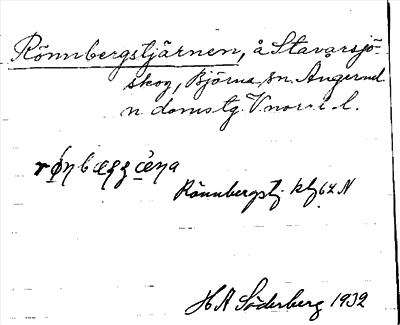 Rönnbergstjärnen, å Stavarsjö-
skog, Björna sn. Ångerml.
n. domstg. V.norr. l.
Rönnbergstj. kfl 62 N
H A Söderberg 1932